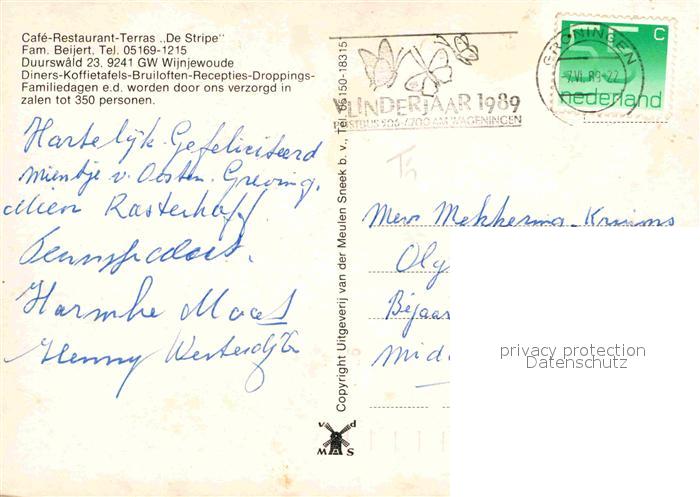 Café-Restaurant-Terras „De Stripe"
Fam. Beijert, Tel. 05169-1215
Duurswâld 23, 9241 GW Wijnjewoude
Diners-Koffietafels-Bruiloften-Recepties-Droppings-
Familiedagen e.d. worden door ons verzorgd in
zalen tot 350 personen.
Hartelijk Gefeliciteerd
Mientje v. Oosten-Greving.
Mien Rasterhoff
Harmke Maat
Henny Westerdijk
Copyright Uitgeverij van der Meulen Sneek b.v., Tel. 05150-18315
v d
MAS
VLINDERJAAR 1989
POSTBUS 506 6700 AM WAGENINGEN
GRONINGEN
7.VI.89-22
55 C
nederland
Mevr Mekkerma-Kruims
Oly
Bejaar
Mid
privacy protection
Datenschutz